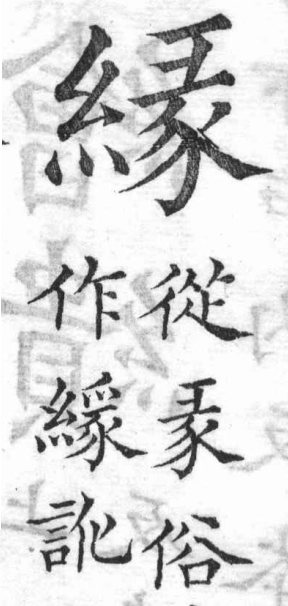 緣
從彖俗
作縁訛